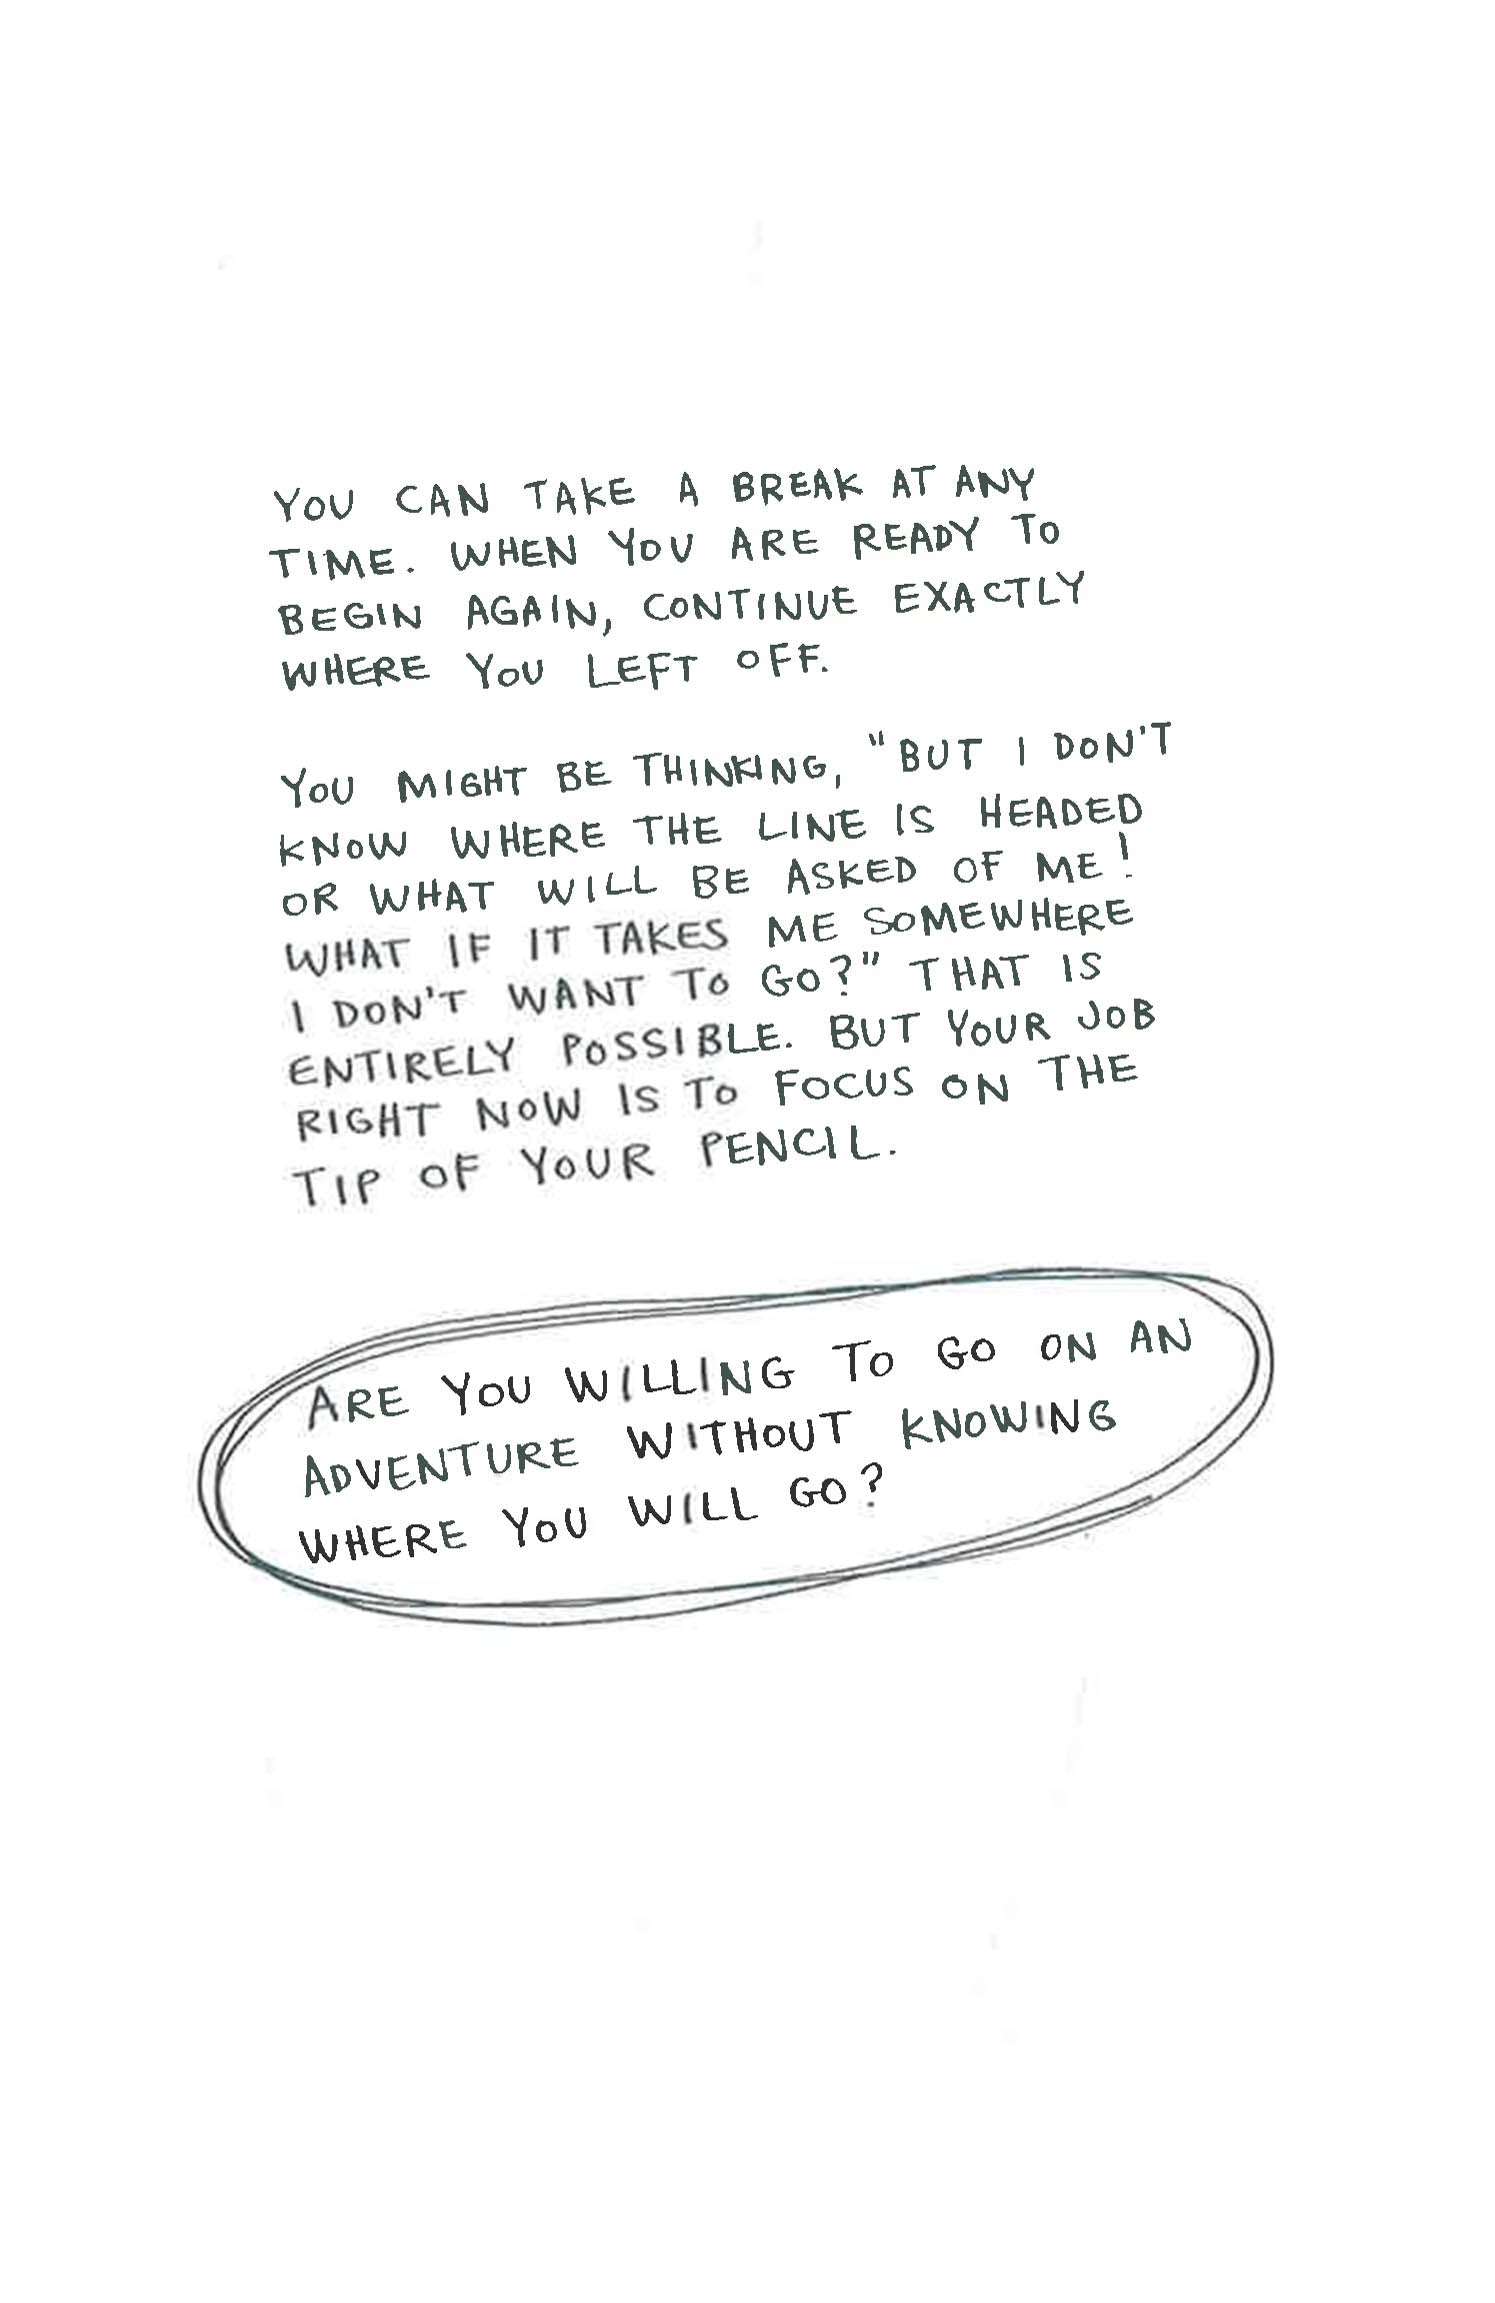 YOU CAN TAKE A BREAK AT ANY
TIME. WHEN YOU ARE READY TO
BEGIN AGAIN, CONTINUE EXACTLY
WHERE YOU LEFT OFF.
YOU MIGHT BE THINKING, "BUT I DON'T
KNOW WHERE THE LINE IS HEADED
OR WHAT WILL BE ASKED OF ME!
WHAT IF IT TAKES ME SOMEWHERE
I DON'T WANT TO GO?" THAT IS
ENTIRELY POSSIBLE. BUT YOUR JOB
RIGHT NOW IS TO FOCUS ON THE
TIP OF YOUR PENCIL.
ARE YOU WILLING TO GO ON AN
ADVENTURE WITHOUT KNOWING
WHERE YOU WILL GO?